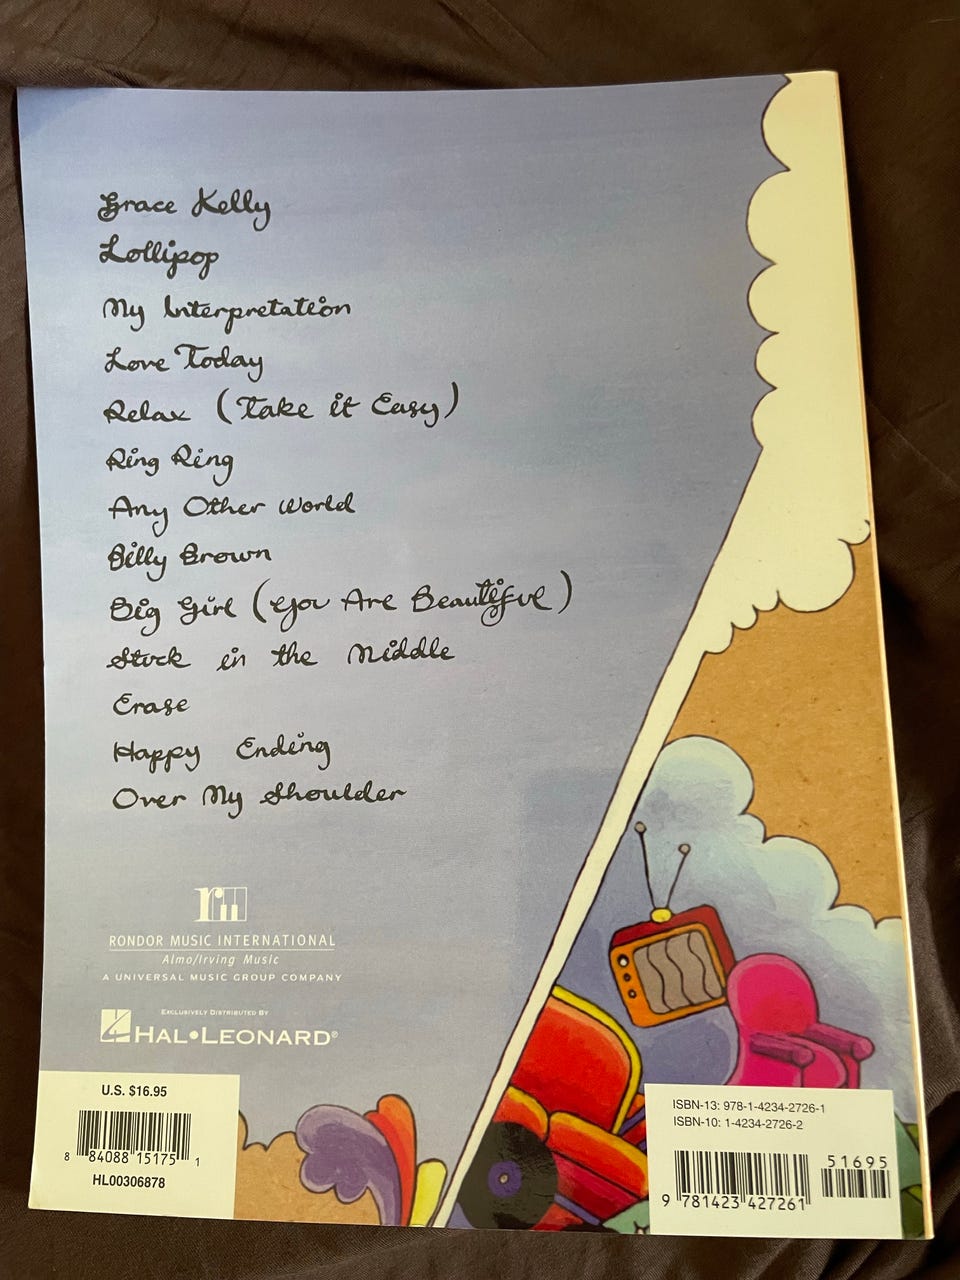 Grace Kelly
Lollipop
My Interpretation
Love Today
Relax (Take it Easy)
Ring Ring
Any Other World
Billy Brown
Big Girl (You Are Beautiful)
Stuck in the Middle
Erase
Happy Ending
Over My Shoulder
RONDOR MUSIC INTERNATIONAL
Almo/Irving Music
A UNIVERSAL MUSIC GROUP COMPANY
EXCLUSIVELY DISTRIBUTED BY
HAL•LEONARD®
U.S. $16.95
8 84088 15175 1
HL00306878
ISBN-13: 978-1-4234-2726-1
ISBN-10: 1-4234-2726-2
51695
9 781423 427261